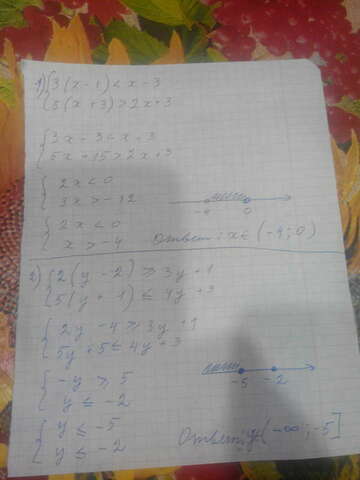 1) { 3(x - 1) < x - 3
{ 5(x + 3) > 2x + 3
{ 3x - 3 < x - 3
{ 5x + 15 > 2x + 3
{ 2x < 0
{ 3x > - 12
{ 2x < 0
{ x > - 4
-4 0
Ответ: x ∈ (-4; 0)
2) { 2(y - 2) ⩾ 3y + 1
{ 5(y + 1) ≤ 4y + 3
{ 2y - 4 ⩾ 3y + 1
{ 5y + 5 ≤ 4y + 3
{ -y ⩾ 5
{ y ≤ -2
-5 -2
{ y ≤ -5
{ y ≤ -2
Ответ: y (-∞; -5]